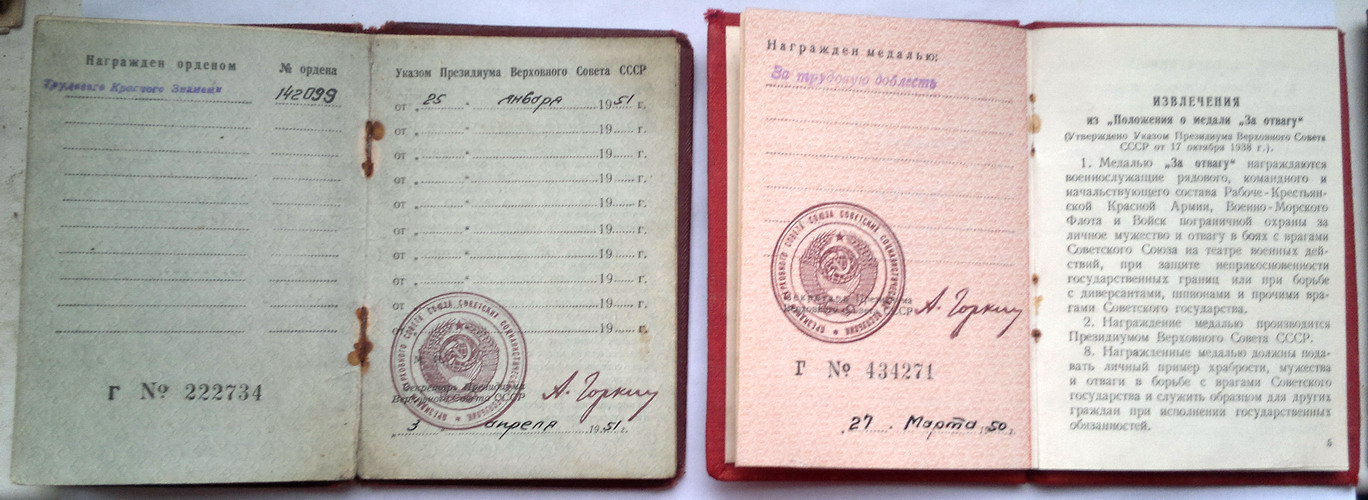 Награжден орденом
№ ордена
Трудового Красного Знамени
142099
Указом Президиума Верховного Совета СССР
от „ 25 “ января 1951 г.
от „ “ 19 г.
от „ “ 19 г.
от „ “ 19 г.
от „ “ 19 г.
от „ “ 19 г.
от „ “ 19 г.
от „ “ 19 г.
от „ “ 19 г.
от 19 г.
ПРЕЗИДИУМ ВЕРХОВНОГО СОВЕТА СОЮЗА СОВЕТСКИХ СОЦИАЛИСТИЧЕСКИХ РЕСПУБЛИК
Секретарь Президиума
Верховного Совета СССР
А. Горкин
Г № 222734
„ 3 апреля 1951 г.
Награжден медалью:
За трудовую доблесть
ПРЕЗИДИУМ ВЕРХОВНОГО СОВЕТА СОЮЗА СОВЕТСКИХ СОЦИАЛИСТИЧЕСКИХ РЕСПУБЛИК
Секретарь Президиума
Верховного Совет СССР
А. Горкин
Г № 434271
„ 27 Марта 1950 г.
ИЗВЛЕЧЕНИЯ
из „Положения о медали „За отвагу“
(Утверждено Указом Президиума Верховного Совета
СССР от 17 октября 1938 г.).
1. Медалью „За отвагу“ награждаются
военнослужащие рядового, командного и
начальствующего состава Рабоче-Крестьян-
ской Красной Армии, Военно-Морского
Флота и Войск пограничной охраны за
личное мужество и отвагу в боях с врагами
Советского Союза на театре военных дей-
ствий, при защите неприкосновенности
государственных границ или при борьбе
с диверсантами, шпионами и прочими вра-
гами Советского государства.
2. Награждение медалью производится
Президиумом Верховного Совета СССР.
8. Награжденные медалью должны пода-
вать личный пример храбрости, мужества
и отваги в борьбе с врагами Советского
государства и служить образцом для других
граждан при исполнении государственных
обязанностей.
5